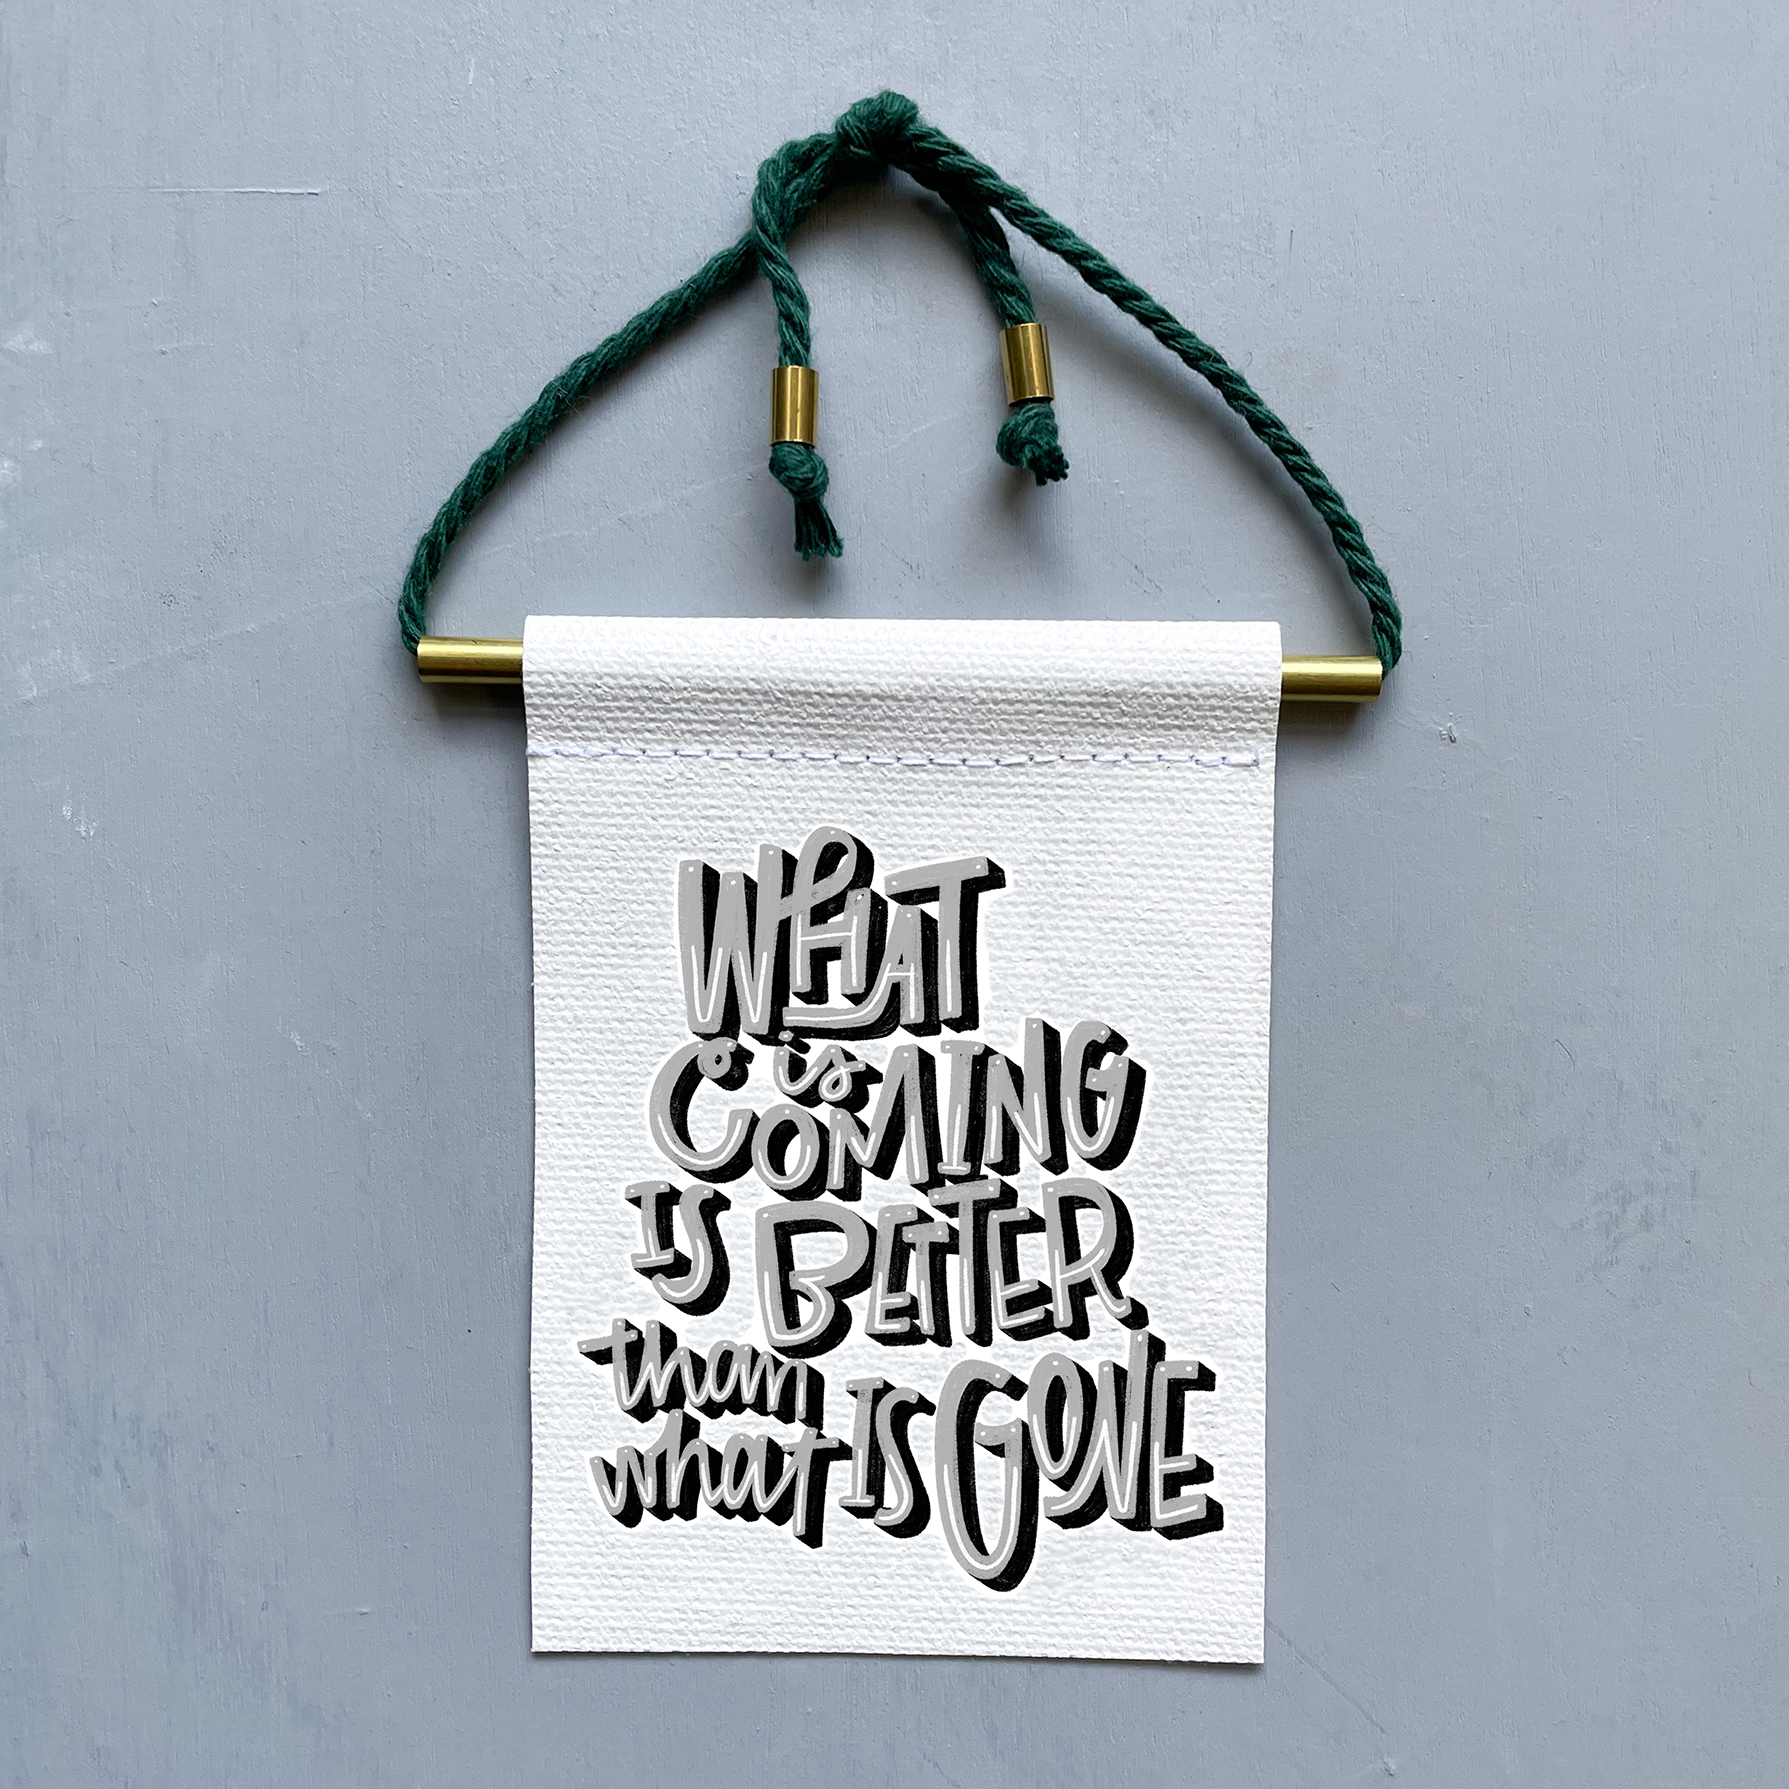 WHAT
is
COMING
IS BETTER
than
what IS GONE